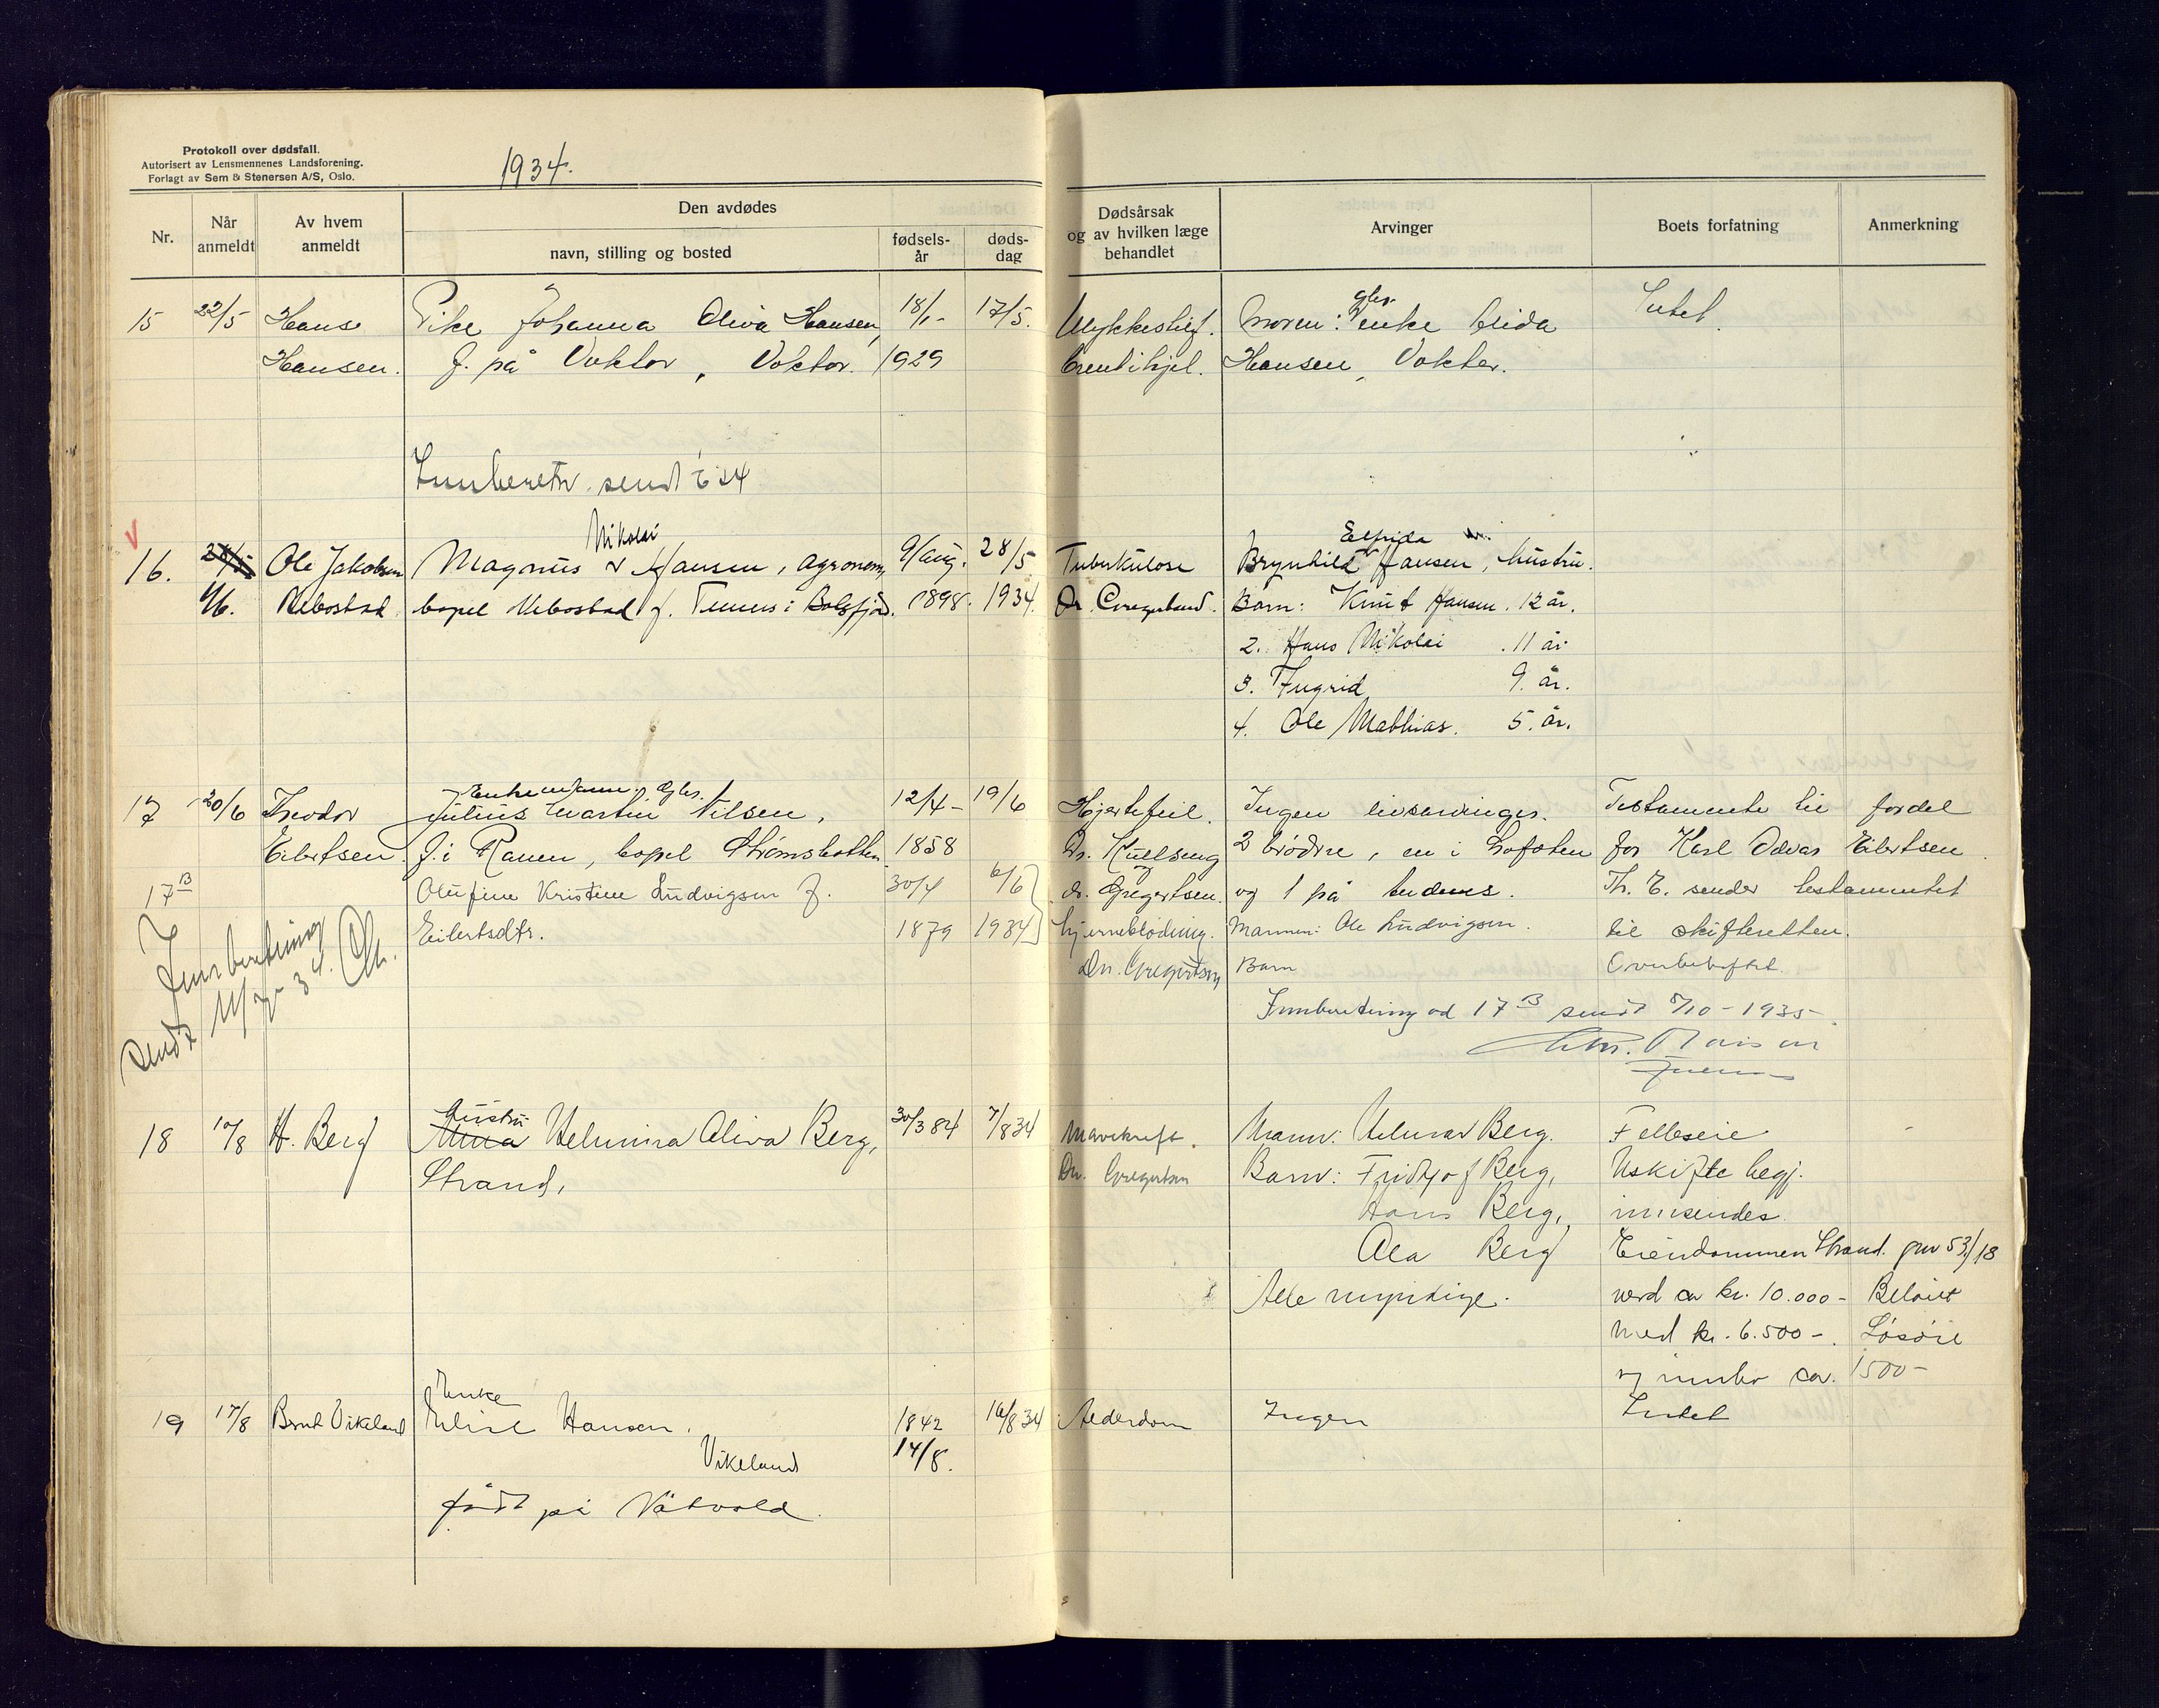 Protokoll over dødsfall.
Autorisert av Lensmennenes Landsforening.
Forlagt av Sem & Stenersen A/S, Oslo.
1934.
Nr.
Når anmeldt
Av hvem anmeldt
Den avdødes
navn, stilling og bosted
fødsels-år
døds-dag
Dødsårsak og av hvilken læge behandlet
Arvinger
Boets forfatning
Anmerkning
15 22/5 Hans Pike Johanna Oliva Hansen, 18/1- 17/5. Ulykkestilf. Moren: gbr. enke Elida Intet.
Hansen. f. på Voktor, Voktor. 1929 brent ihjel. Hansen, Vokter.
Innberetn. send 34
Nikolai Elfrida
16. Ole Jakobsen Magnus Hansen, agronom, 9/aug. 28/5 Tuberkulose Brynhild Hansen, hustru.
1/6. Vebostad bopel Vebostad f. i Balsfjord. 1898. 1934. Dr. Gregertsen. Barn: Knut Hansen. 12 år.
2. Hans Nikolai . 11 år
3. Ingrid 9. år.
4. Ole Mathias. 5. år.
Enkemann, gbr.
17 20/6 Theodor Julius Martin Nilsen, 12/4- 19/6 Hjertefeil. Ingen livsarvinger. Testamente til fordel
Eilertsen. f. i Ranen, bopel Strømsbotten 1858 Dr. Kullseng 2 brødre, en i Lofoten for Karl Odvar Eilertsen.
17 B Olufine Kristine Ludvigsen f. 30/4 6/6 dr. Gregertsen. og 1 på Th. E. sender testamentet
Eilertsdtr. 1879 1934 hjerneblødning. Mannen: Ole Ludvigsen. til skifteretten.
Dr. Gregertsen Barn Overbeheftet.
Innberetning
sendt 11/7 34.
Innberetning ad 17 B sendt 8/10-1935.
Hustru
18 10/8 H. Berg Helmina Oliva Berg, 30/3 84 7/8 34 Mavekreft. Mann: Helmar Berg. Felleseie
Strand, Dr. Gregertsen Barn: Fridtjof Berg, Uskifte begj.
Hans Berg, innsendes.
Ola Berg Eiendommen Strand. gnr 53/18
Alle myndige. verd ca kr. 10.000- Belånt
med kr. 6.500-. Løsøre
og innbo ca. 1500-
Enke
19 17/8 Bernt Vikeland Elise Hansen. 1842 16/8 34 Alderdom Ingen Intet
Vikeland 14/8.
født på Våtvold.